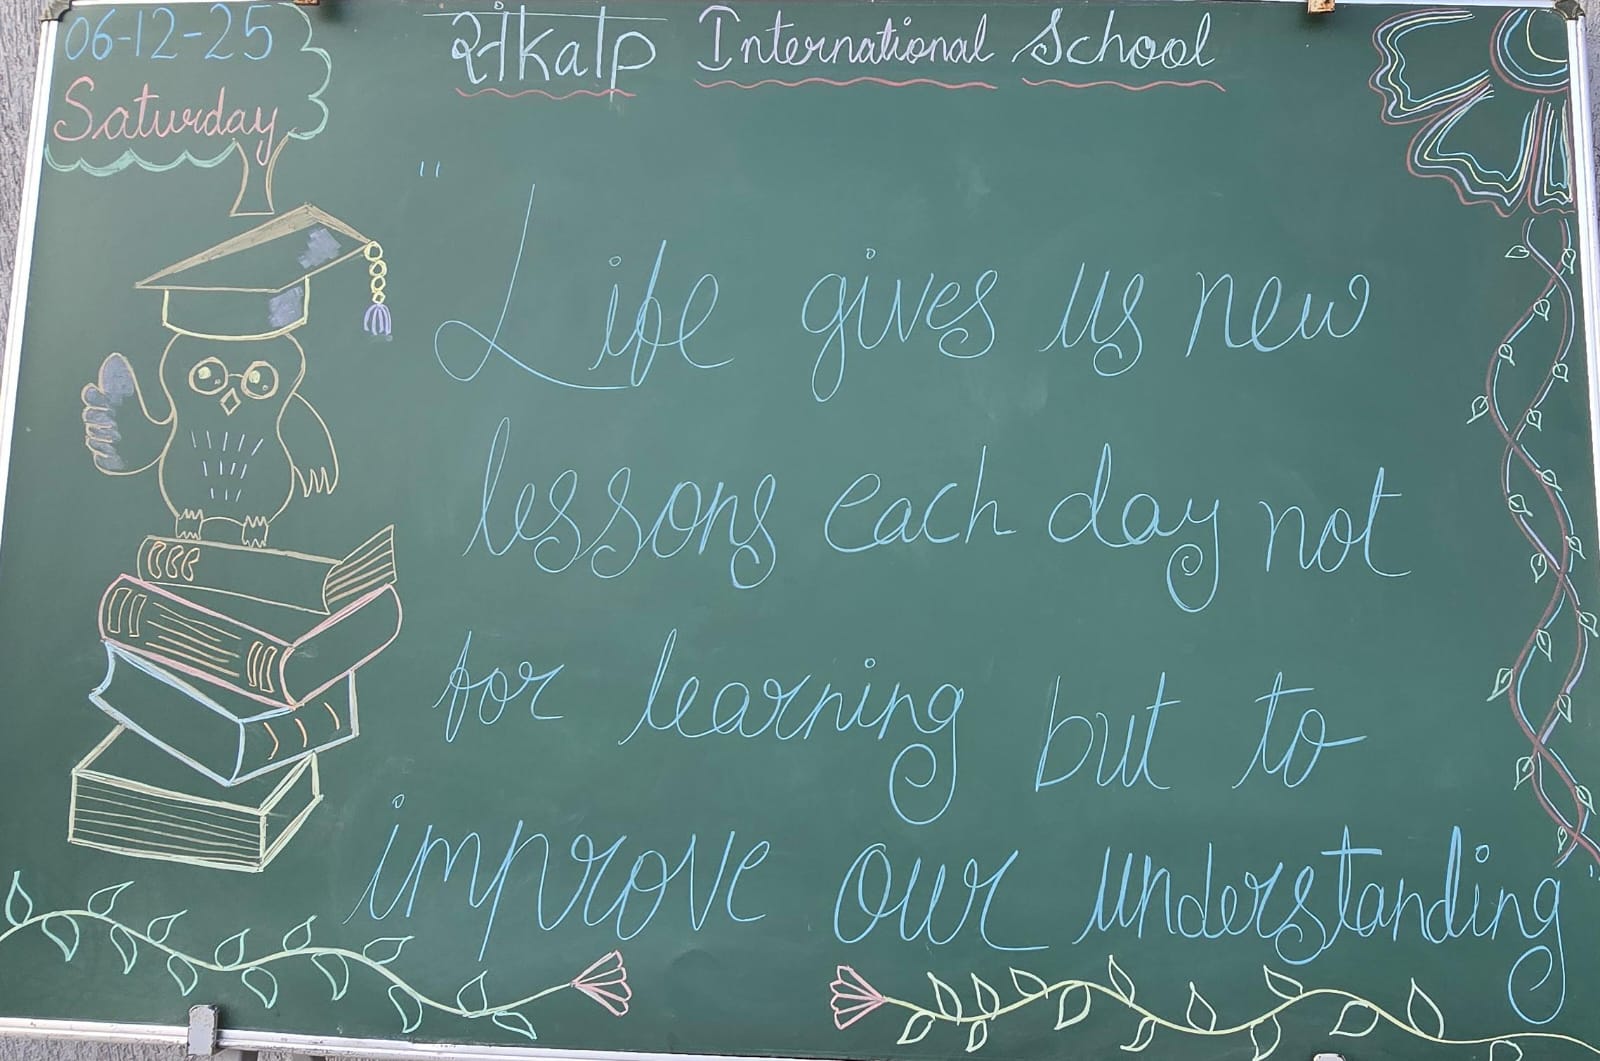 06-12-25
Saturday
संkalp International School
"Life gives us new
lessons each day not
for learning but to
improve our understanding"